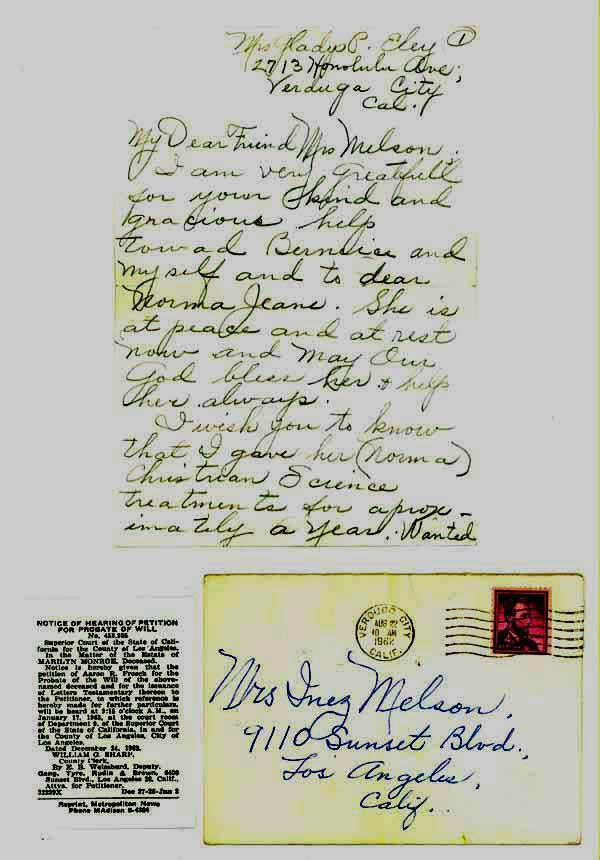 Mrs Gladys P. Eley ①
2713 Honolulu Ave;
Verduga City
Cal.
My Dear Friend Mrs Melson.
I am very Greatfull
for your kind and
gracious help
toward Berniece and
myself and to dear
Norma Jeane. She is
at peace and at rest
now and may Our
God bless her & help
her always.
I wish you to know
that I gave her (Norma)
Christian Science
treatments for aprox-
imately a year. Wanted
NOTICE OF HEARING OF PETITION
FOR PROBATE OF WILL
Superior Court of the State of Cali-
fornia for the County of Los Angeles.
In the Matter of the Estate of
MARILYN MONROE, Deceased.
Notice is hereby given that the
petition of Aaron R. Frosch for the
Probate of the Will of the above-
named deceased and for the issuance
of Letters Testamentary thereon to
the Petitioner, to which reference is
hereby made for further particulars,
will be heard at 9:15 o'clock A.M., on
January 17, 1963, at the court room
of Department 9, of the Superior Court
of the State of California, in and for
the County of Los Angeles, City of
Los Angeles.
Dated December 24, 1962.
WILLIAM G. SHARP,
County Clerk,
By E. B. Weisbard, Deputy.
Gang, Tyre, Rudin & Brown, 6400
Sunset Blvd., Los Angeles 28, Calif.,
Attys. for Petitioner.
32239X Dec 27-28-Jan 3
Reprint, Metropolitan News
Phone MAdison 8-4384
VERDUGO CITY
AUG 22
10 AM
1962
CALIF.
Mrs Inez Melson,
9110 Sunset Blvd.
Los Angeles,
Calif.